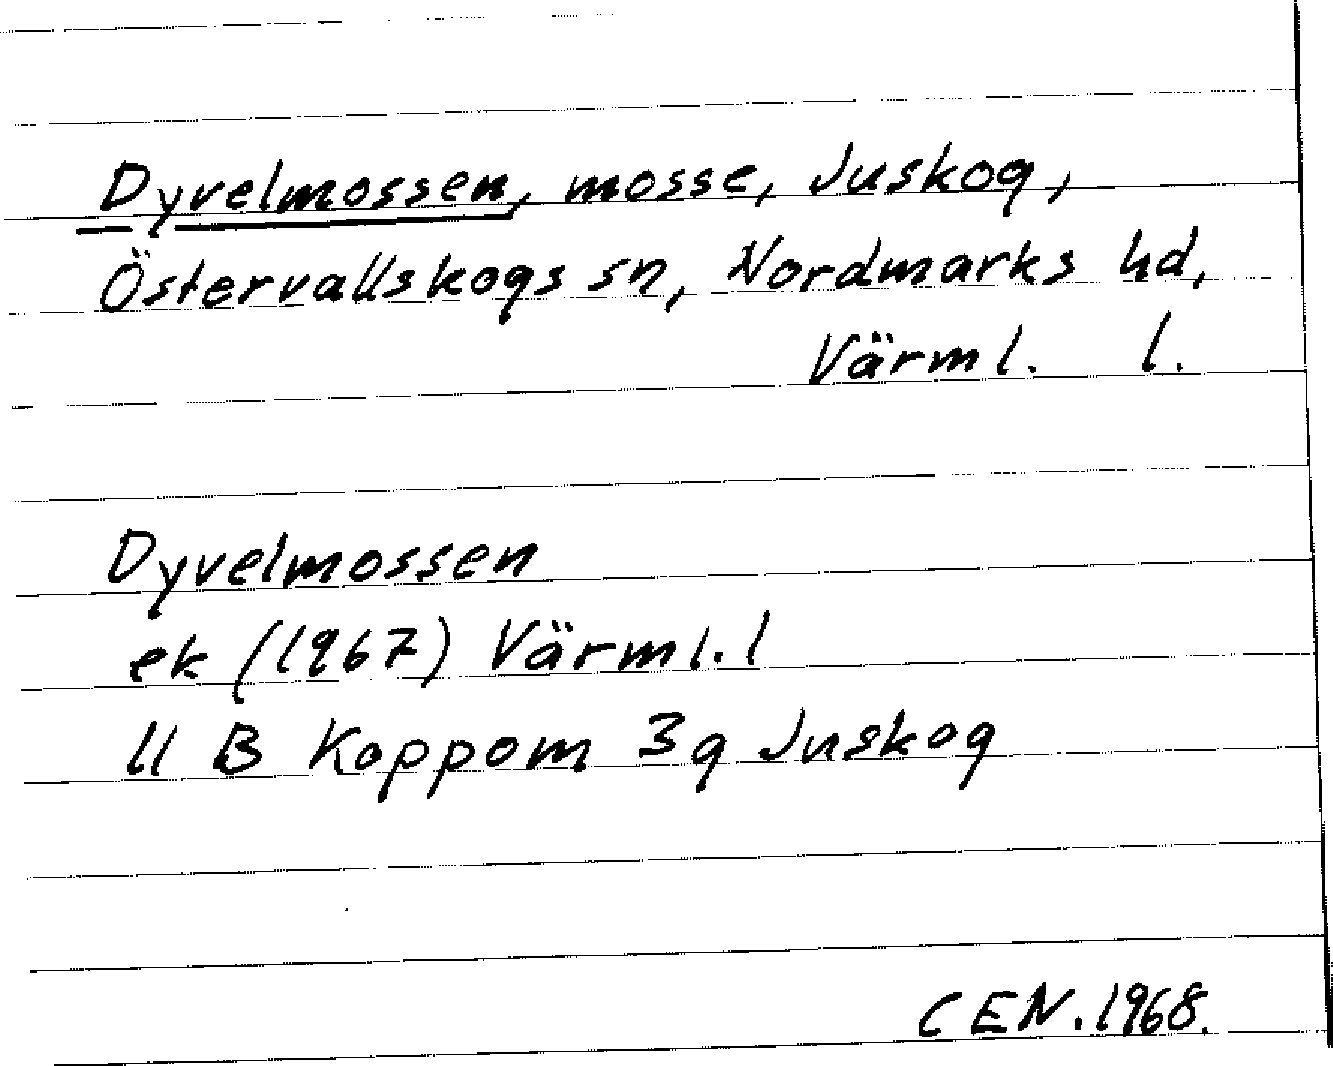 Dyvelmossen, mosse, Juskog,
Östervallskogs sn, Nordmarks hd,
Värml. l.
Dyvelmossen
ek (1967) Värml. l
11 B Koppom 3g Juskog
CEN. 1968.